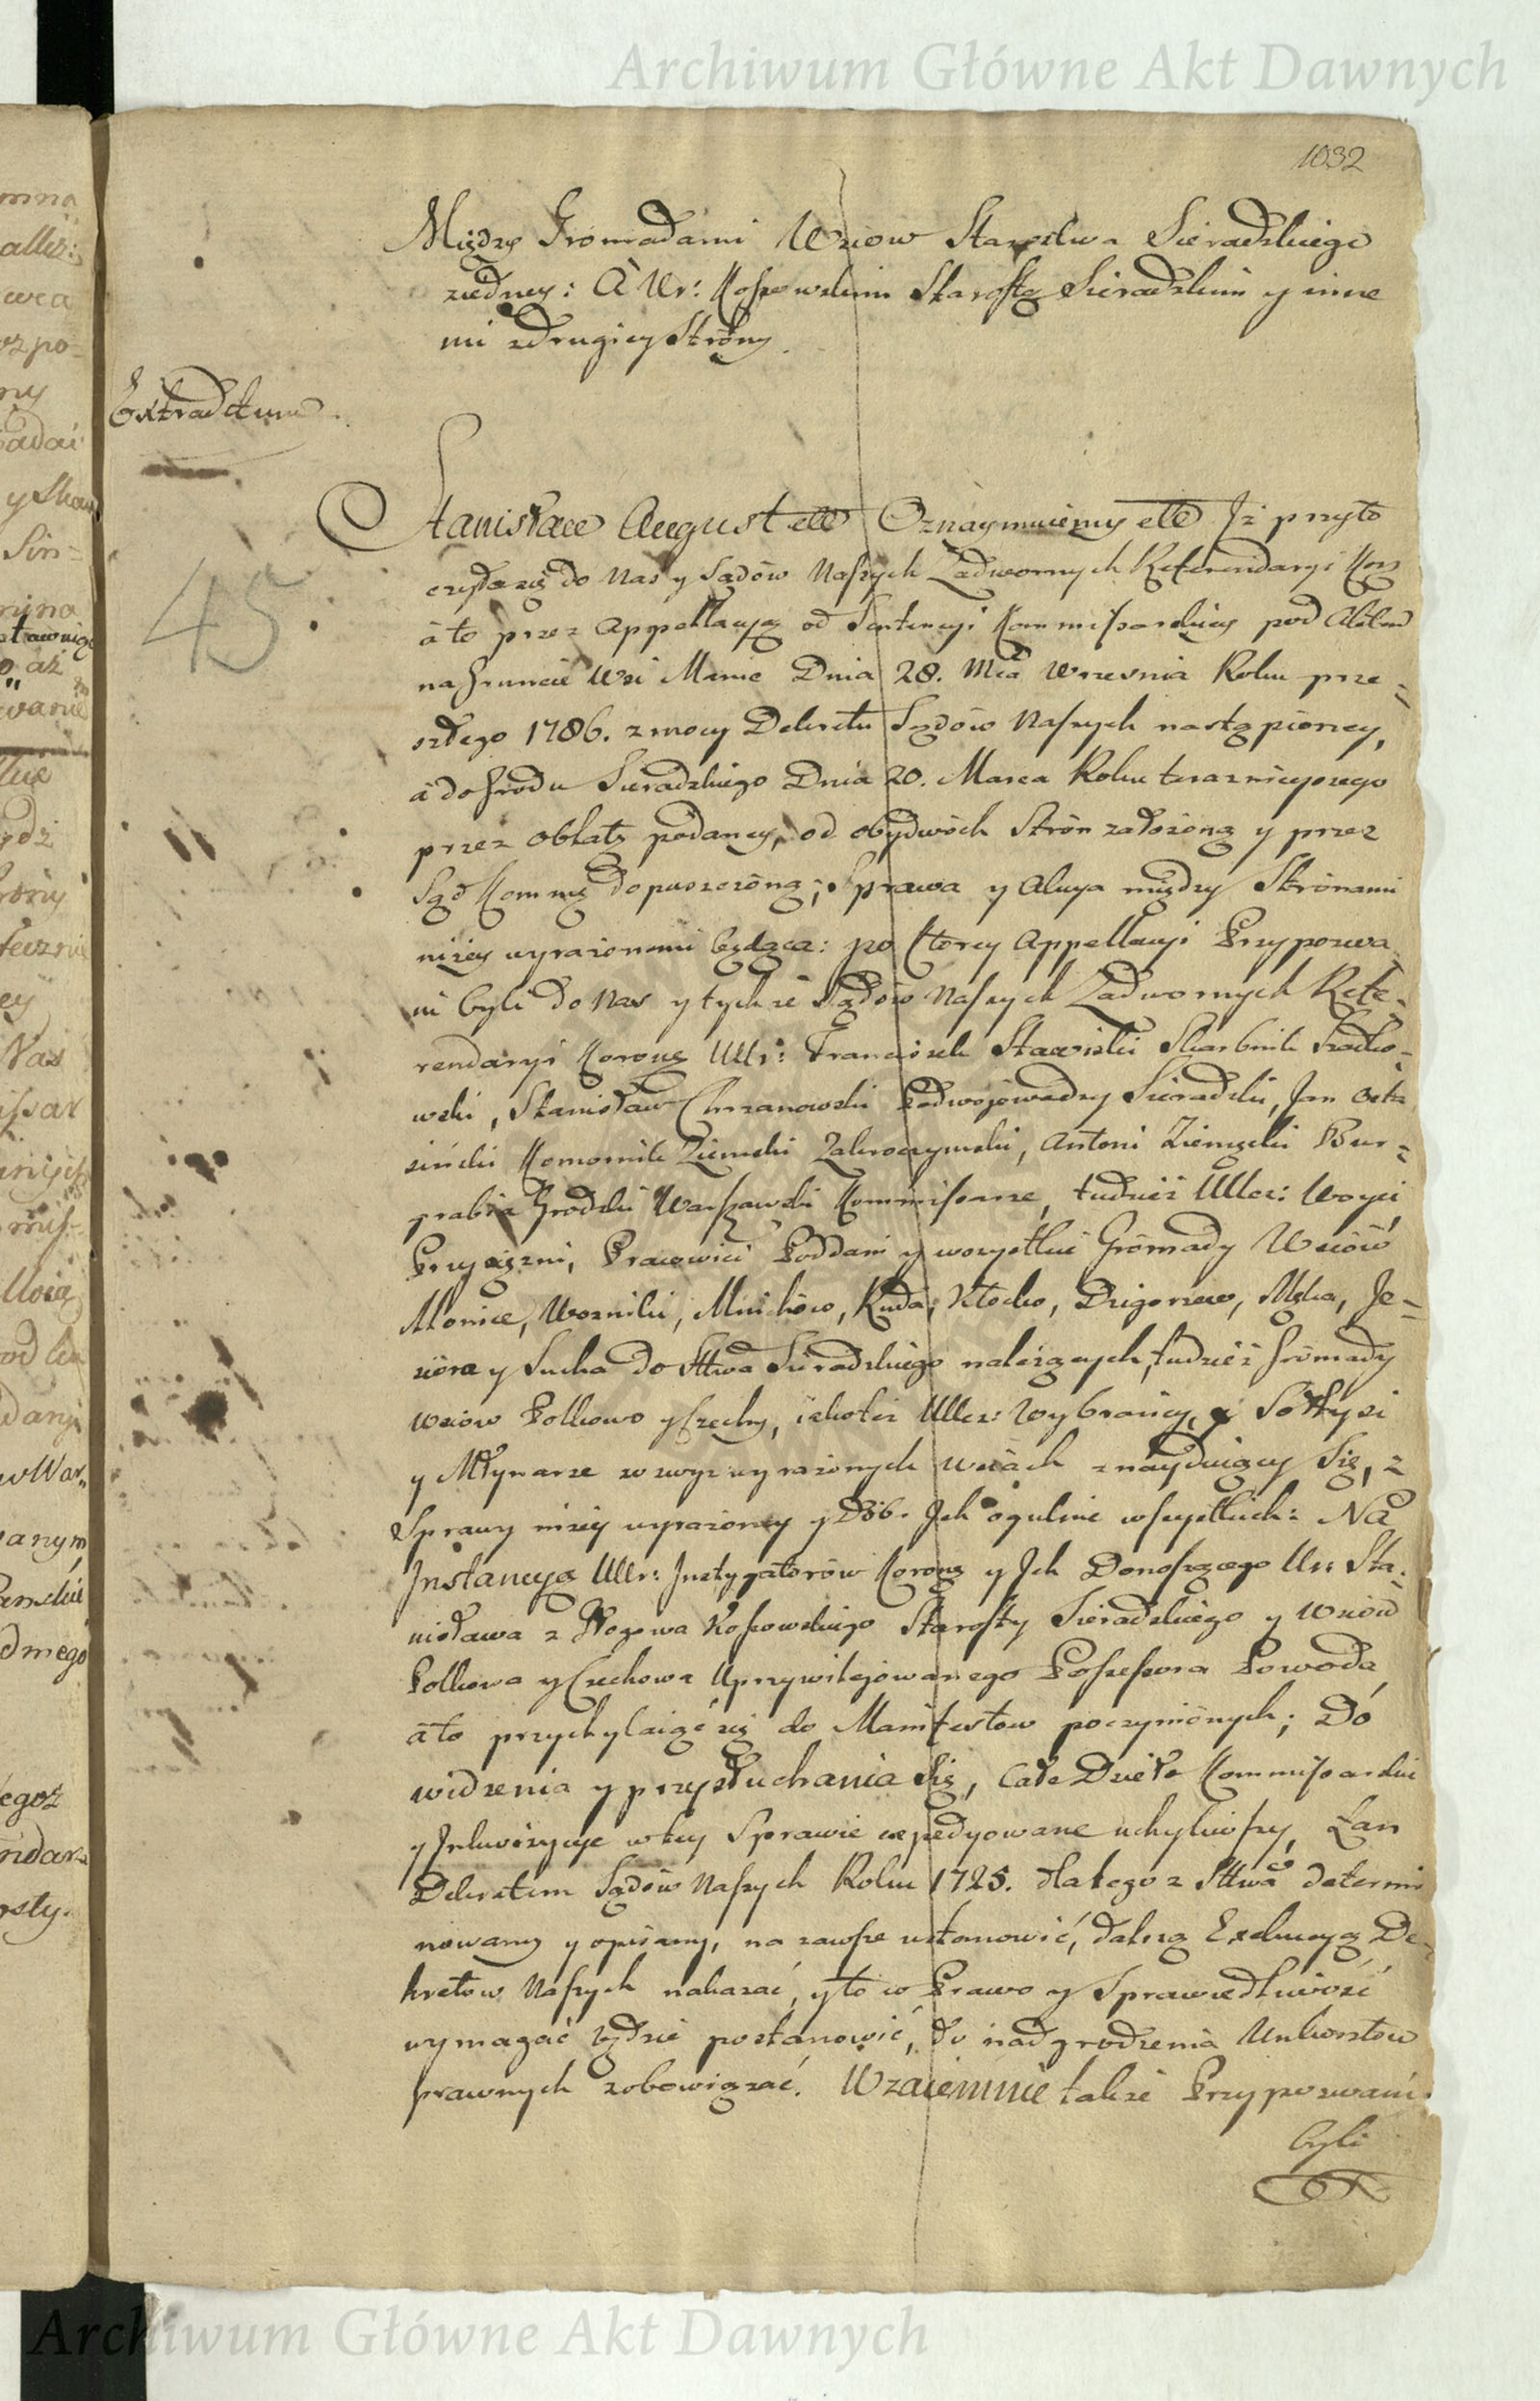 Archiwum Główne Akt Dawnych
1032
Między Gromadami Wsiow Starostwa Sieradzkiego
ziedney: A Ur: Kossowskim Starostą Sieradzkim y inne
mi zdrugiey Strony.
Extraditum
45
Stanisław August etc Oznaymuiemy etc Iż przyto
czyła się do Nas y Sądów Naszych Zadwornych Referendaryi Kor
à to przez Appellacyą od Sentencyi Kommissarskiey pod Aktem
na Gruncie Wsi Mnice Dnia 28. Mca Wrzesnia Roku prze-
szłego 1786. z mocy Dekretu Sądów Naszych nastąpioney,
à do Grodu Sieradzkiego Dnia 20. Marca Roku teraznieyszego
przez oblatę podaney, od obydwóch Strón założoną y przez
Sąd Kommę dopuszczóną; Sprawa y Akcya między Strónami
niżey wyrażonemi będąca: po ktorey Appellacyi Przypozwa
ni byli do Nas y tychże Sądów Naszych Zadwornych Refe-
rendaryi Korong Ur: Franciszek Stawiski Skarbnik
wski, Stanisław Chrzanowski Podwojewodzy Sieradzki, Jan
sinski Komornik Ziemski Zakroczymski, Antoni Ziemęcki Bur-
grabia Grodzki Warszawski Kommissarze, tudzież Uller: Woyci
Przysiężni, Pracowici Poddani y wszystkie Grómady Wsiów
Monice, Wozniki, Mnichów, Ruda, Kłocko, Dzigorzew, Męka, Je-
ziora y Sucha do Sttwa Sieradzkiego należących, tudzież Grómady
Wsiów Polkowo y Czechy, iakoteż Uller: Wybrańcy, y Sołtysi
y Młynarze w wyz wyrażonych Wsiach znayduiący Się, z
Sprawy niżey wyrażoney y Dób. Ich ogulnie wszystkich: NA
Instancyą Ullr: Instygatorów Korong y Ich Donoszącego Ur: Sta-
nisława z Głogowa Kossowskiego Starosty Sieradzkiego y Wsiów
Polkowa y Czechowa Uprzywilejowanego Possessora Powoda,
à to przychylaiąc się do Manifestow poczynionych; Do
widzenia y przysłuchania Się, Całe Dzieło Kommissarskie
y Inkwizycye w tey Sprawie expedyowane uchyliwszy, Łan
Dekretem Sądów Naszych Roku 1725. dla tego z Sttwa determi
nowany y opisany, na zawsze ustanowić, dalszą Exekucyą De-
kretow Naszych nakazać, y to co Prawo y Sprawiedliwość
wymagać będzie postanowić, do nadgrodzenia Unkosztow
prawnych zobowiązać. Wzaiemnie także Przypozwani
byli
Archiwum Główne Akt Dawnych